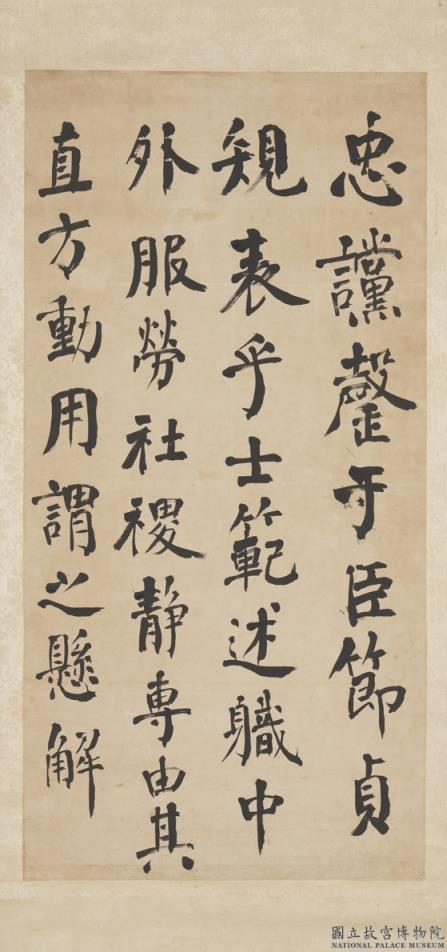 忠讜罄于臣節貞
規表乎士範述軄中
外服勞社稷靜專由其
直方動用謂之懸解
國立故宮博物院
NATIONAL PALACE MUSEUM